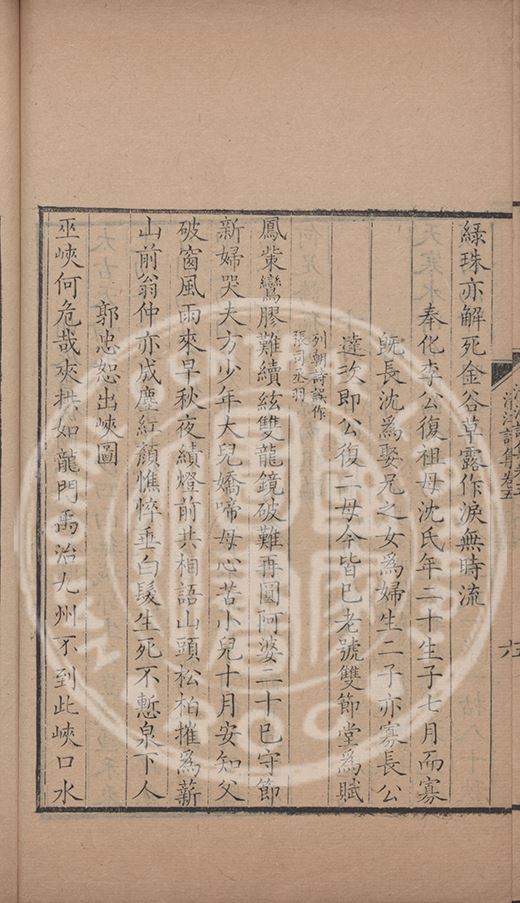 綠珠亦解死金谷草露作淚無時流
奉化李公復祖母沈氏年二十生子七月而寡
旣長沈爲娶兄之女爲婦生二子亦寡長公
達次即公復二母今皆已老號雙節堂爲賦
列朝詩誤作
張司丞羽
鳳觜鸞膠難續絃雙龍鏡破難再圓阿婆二十已守節
新婦哭夫方少年大兒嬌啼母心苦小兒十月安知父
破窗風雨來早秋夜績燈前共相語山頭松柏摧爲薪
山前翁仲亦成塵紅顏憔悴垂白髮生死不慙泉下人
郭忠恕出峽圖
巫峽何危哉夾拱如龍門禹治九州不到此峽口水